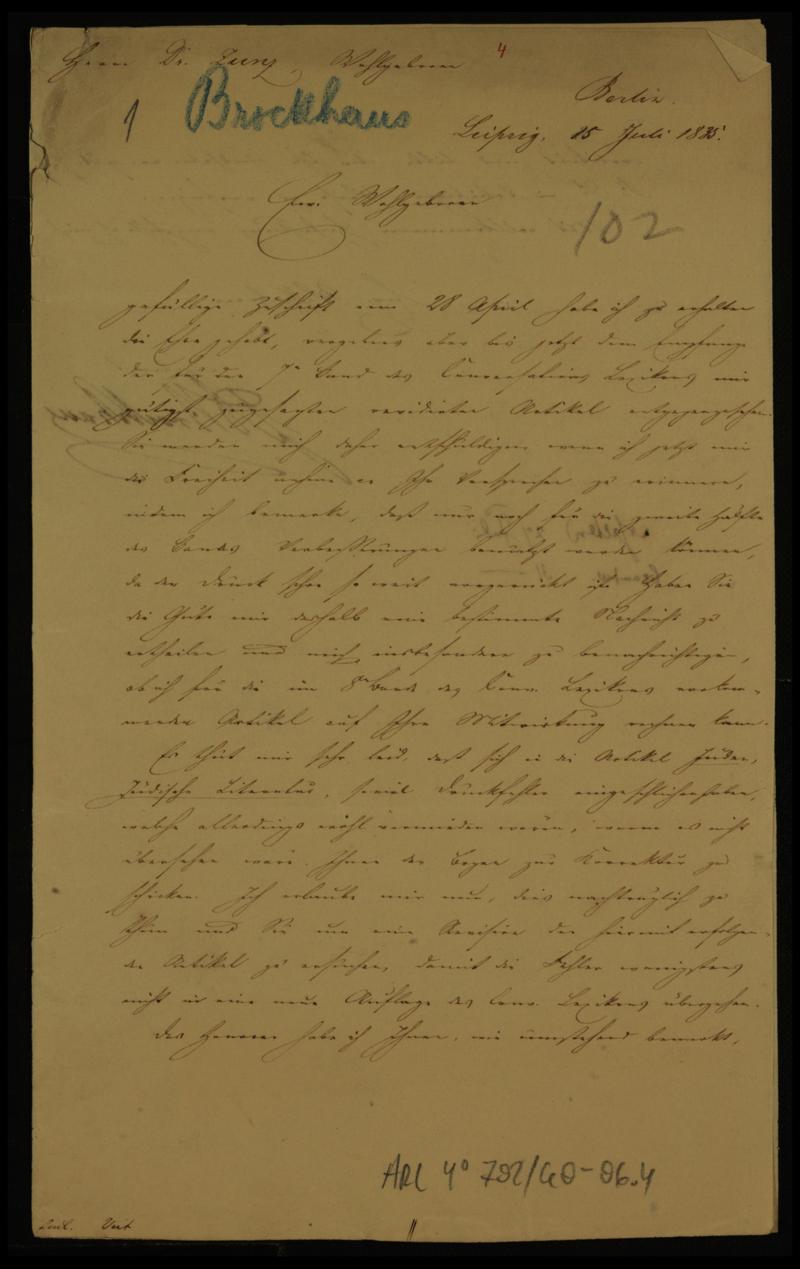 Herrn Dr. Zunz, Wohlgeboren
4
Berlin.
1
Brockhaus
Leipzig, 15 Juli 1835.
Ew. Wohlgeboren
102
gefällige Zuschrift vom 28 April habe ich zu erhalten
die Ehre gehabt, vergebens aber bis jetzt dem Empfange
der für den 7n Band des Conversations Lexikons mir
gütigst zugesagten revidirten Artikel entgegengesehen.
Sie werden mich daher entschuldigen wenn ich jetzt mir
die Freiheit nehme an Ihr Versprechen zu erinnern,
indem ich bemerke, daß nur noch für die zweite Hälfte
des Bandes Verbesserungen benutzt werden können,
da der Druck schon so weit vorgerückt ist. Haben Sie
die Güte mir deshalb eine bestimmte Nachricht zu
ertheilen und mich insbesondere zu benachrichtigen,
ob ich für die im 8n Bande des Conv. Lexikons vorkom-
menden Artikel auf Ihre Mitwirkung rechnen kann.
Es thut mir sehr leid, daß sich in die Artikel Juden,
Jüdische Literatur, soviel Druckfehler eingeschlichen haben,
welche allerdings wohl vermieden wären, wenn es nicht
übersehen wäre Ihnen den Bogen zur Korrektur zu
schicken. Ich erlaube mir nun, dies nachträglich zu
thun und Sie um eine Revision der hiermit erfolgen-
den Artikel zu ersuchen, damit die Fehler wenigstens
nicht in eine neue Auflage des Conv. Lexikons übergehen.
Das Honorar habe ich Ihnen, wie umstehend bemerkt,
ARC 4° 792/G0-06.4